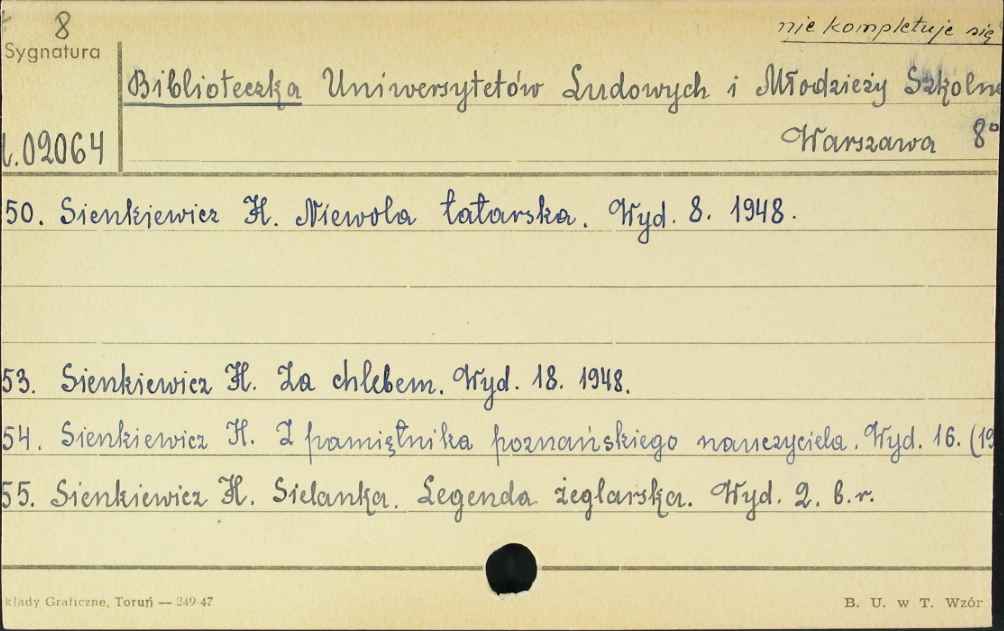 8
nie kompletuje się
Sygnatura
Biblioteczka Uniwersytetów Ludowych i Młodzieży Szkolne
Warszawa 8°
.02064
50. Sienkiewicz H. Niewola tatarska. Wyd. 8. 1948.
53. Sienkiewicz H. Za chlebem. Wyd. 18. 1948.
54. Sienkiewicz H. Z pamiętnika poznańskiego nauczyciela. Wyd. 16. (19
55. Sienkiewicz H. Sielanka. Legenda żeglarska. Wyd. 2. b.r.
kłady Graficzne, Toruń — 249-47
B. U. w T. Wzór